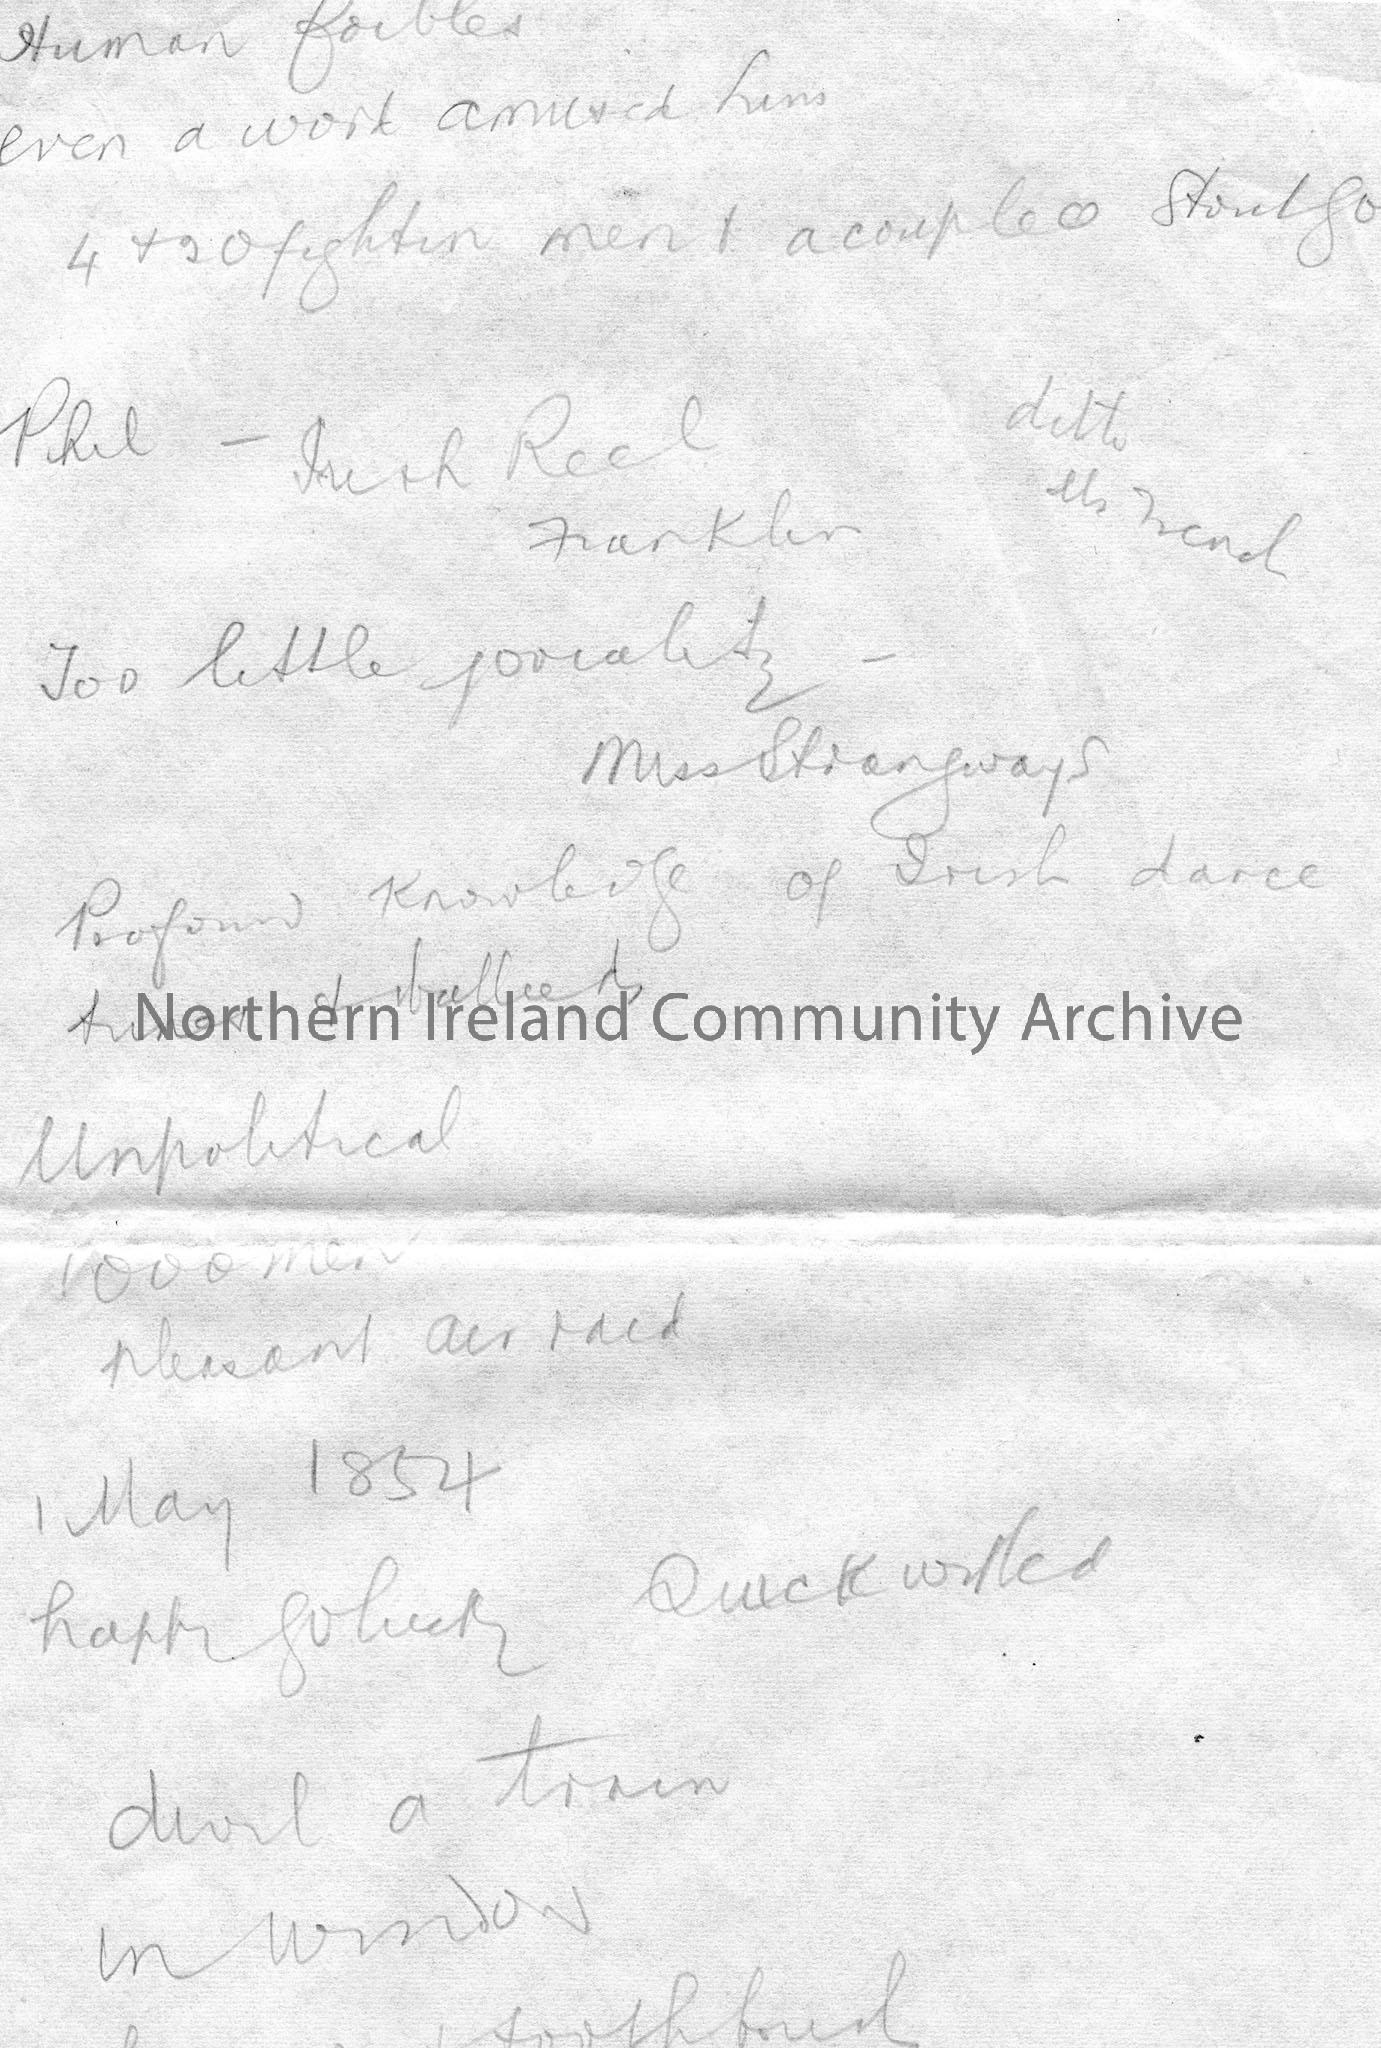 Human foibles
even a work amused him
4 + 20 fightin men & a couple o Stout Go
Phil - Irish Reel
ditto
Franklin
its Trend
Too little joviality -
Miss Strangways
Profound Knowledge of Irish dance
tunes & ballads
Northern Ireland Community Archive
Unpolitical
1000 men
pleasant air raid
1 May 1854
happy go lucky Quick witted
devil a train
in Window
toothbrush